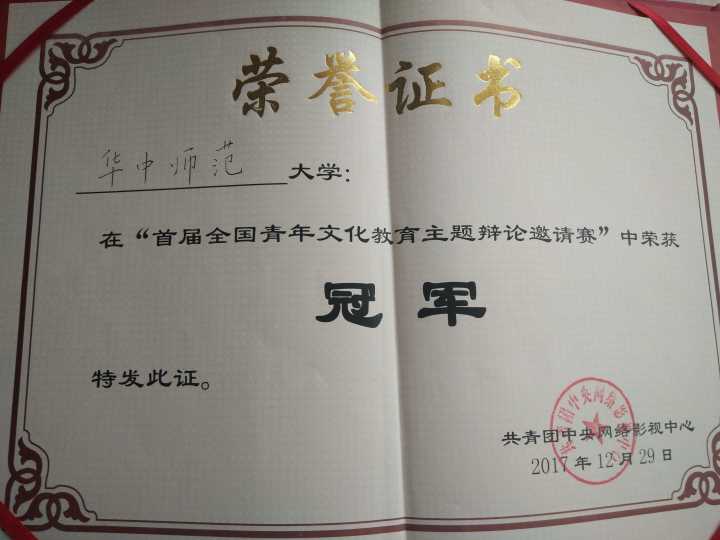 荣誉证书
华中师范大学：
在“首届全国青年文化教育主题辩论邀请赛”中荣获
冠军
特发此证。
共青团中央网络影视中心
2017年12月29日